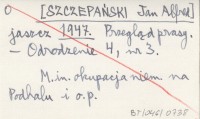 O [SZCZEPAŃSKI Jan Alfred]
jaszcz 1947. Przegląd prasy.
– Odrodzenie 4, nr 3.
M.in. okupacja niem. na
Podhalu i o.p.